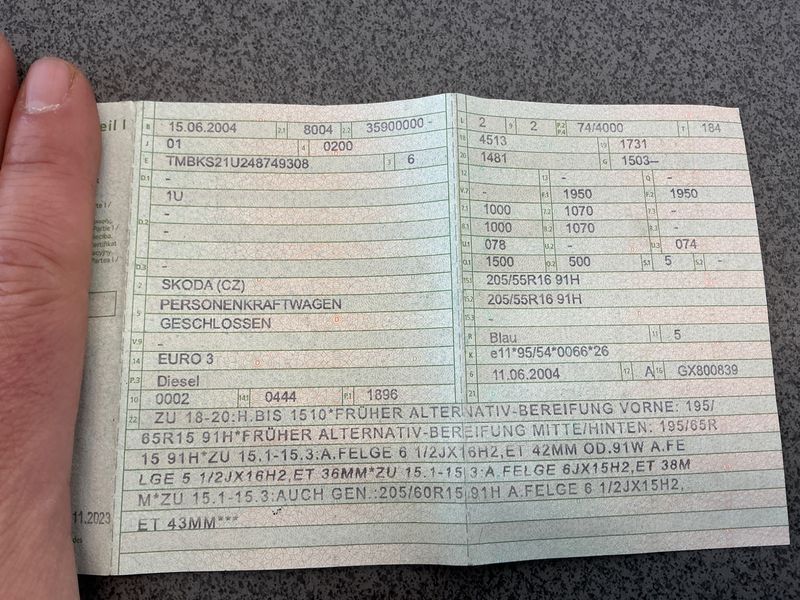 eil I
B 15.06.2004 2.1 8004 2.2 35900000 -
J 01 4 0200
E TMBKS21U248749308 3 6
D.1 -
1U
-
D.2 -
-
D.3 -
2 SKODA (CZ)
5 PERSONENKRAFTWAGEN
GESCHLOSSEN
V.9 -
14 EURO 3
P.3 Diesel
10 0002 14.1 0444 P.1 1896
L 2 9 2 P.2 P.4 74/4000 T 184
18 4513 19 1731
20 1481 G 1503--
12 - 13 - Q -
V.7 - F.1 1950 F.2 1950
7.1 1000 7.2 1070 7.3 -
8.1 1000 8.2 1070 8.3 -
U.1 078 U.2 - U.3 074
O.1 1500 O.2 500 S.1 5 S.2 -
15.1 205/55R16 91H
15.2 205/55R16 91H
15.3 -
R Blau 11 5
K e11*95/54*0066*26
6 11.06.2004 17 A 16 GX800839
21
22 ZU 18-20:H.BIS 1510*FRÜHER ALTERNATIV-BEREIFUNG VORNE: 195/
65R15 91H*FRÜHER ALTERNATIV-BEREIFUNG MITTE/HINTEN: 195/65R
15 91H*ZU 15.1-15.3:A.FELGE 6 1/2JX16H2,ET 42MM OD.91W A.FE
LGE 5 1/2JX16H2,ET 36MM*ZU 15.1-15.3:A.FELGE 6JX15H2,ET 38M
M*ZU 15.1-15.3:AUCH GEN.:205/60R15 91H A.FELGE 6 1/2JX15H2,
ET 43MM***
11.2023
des